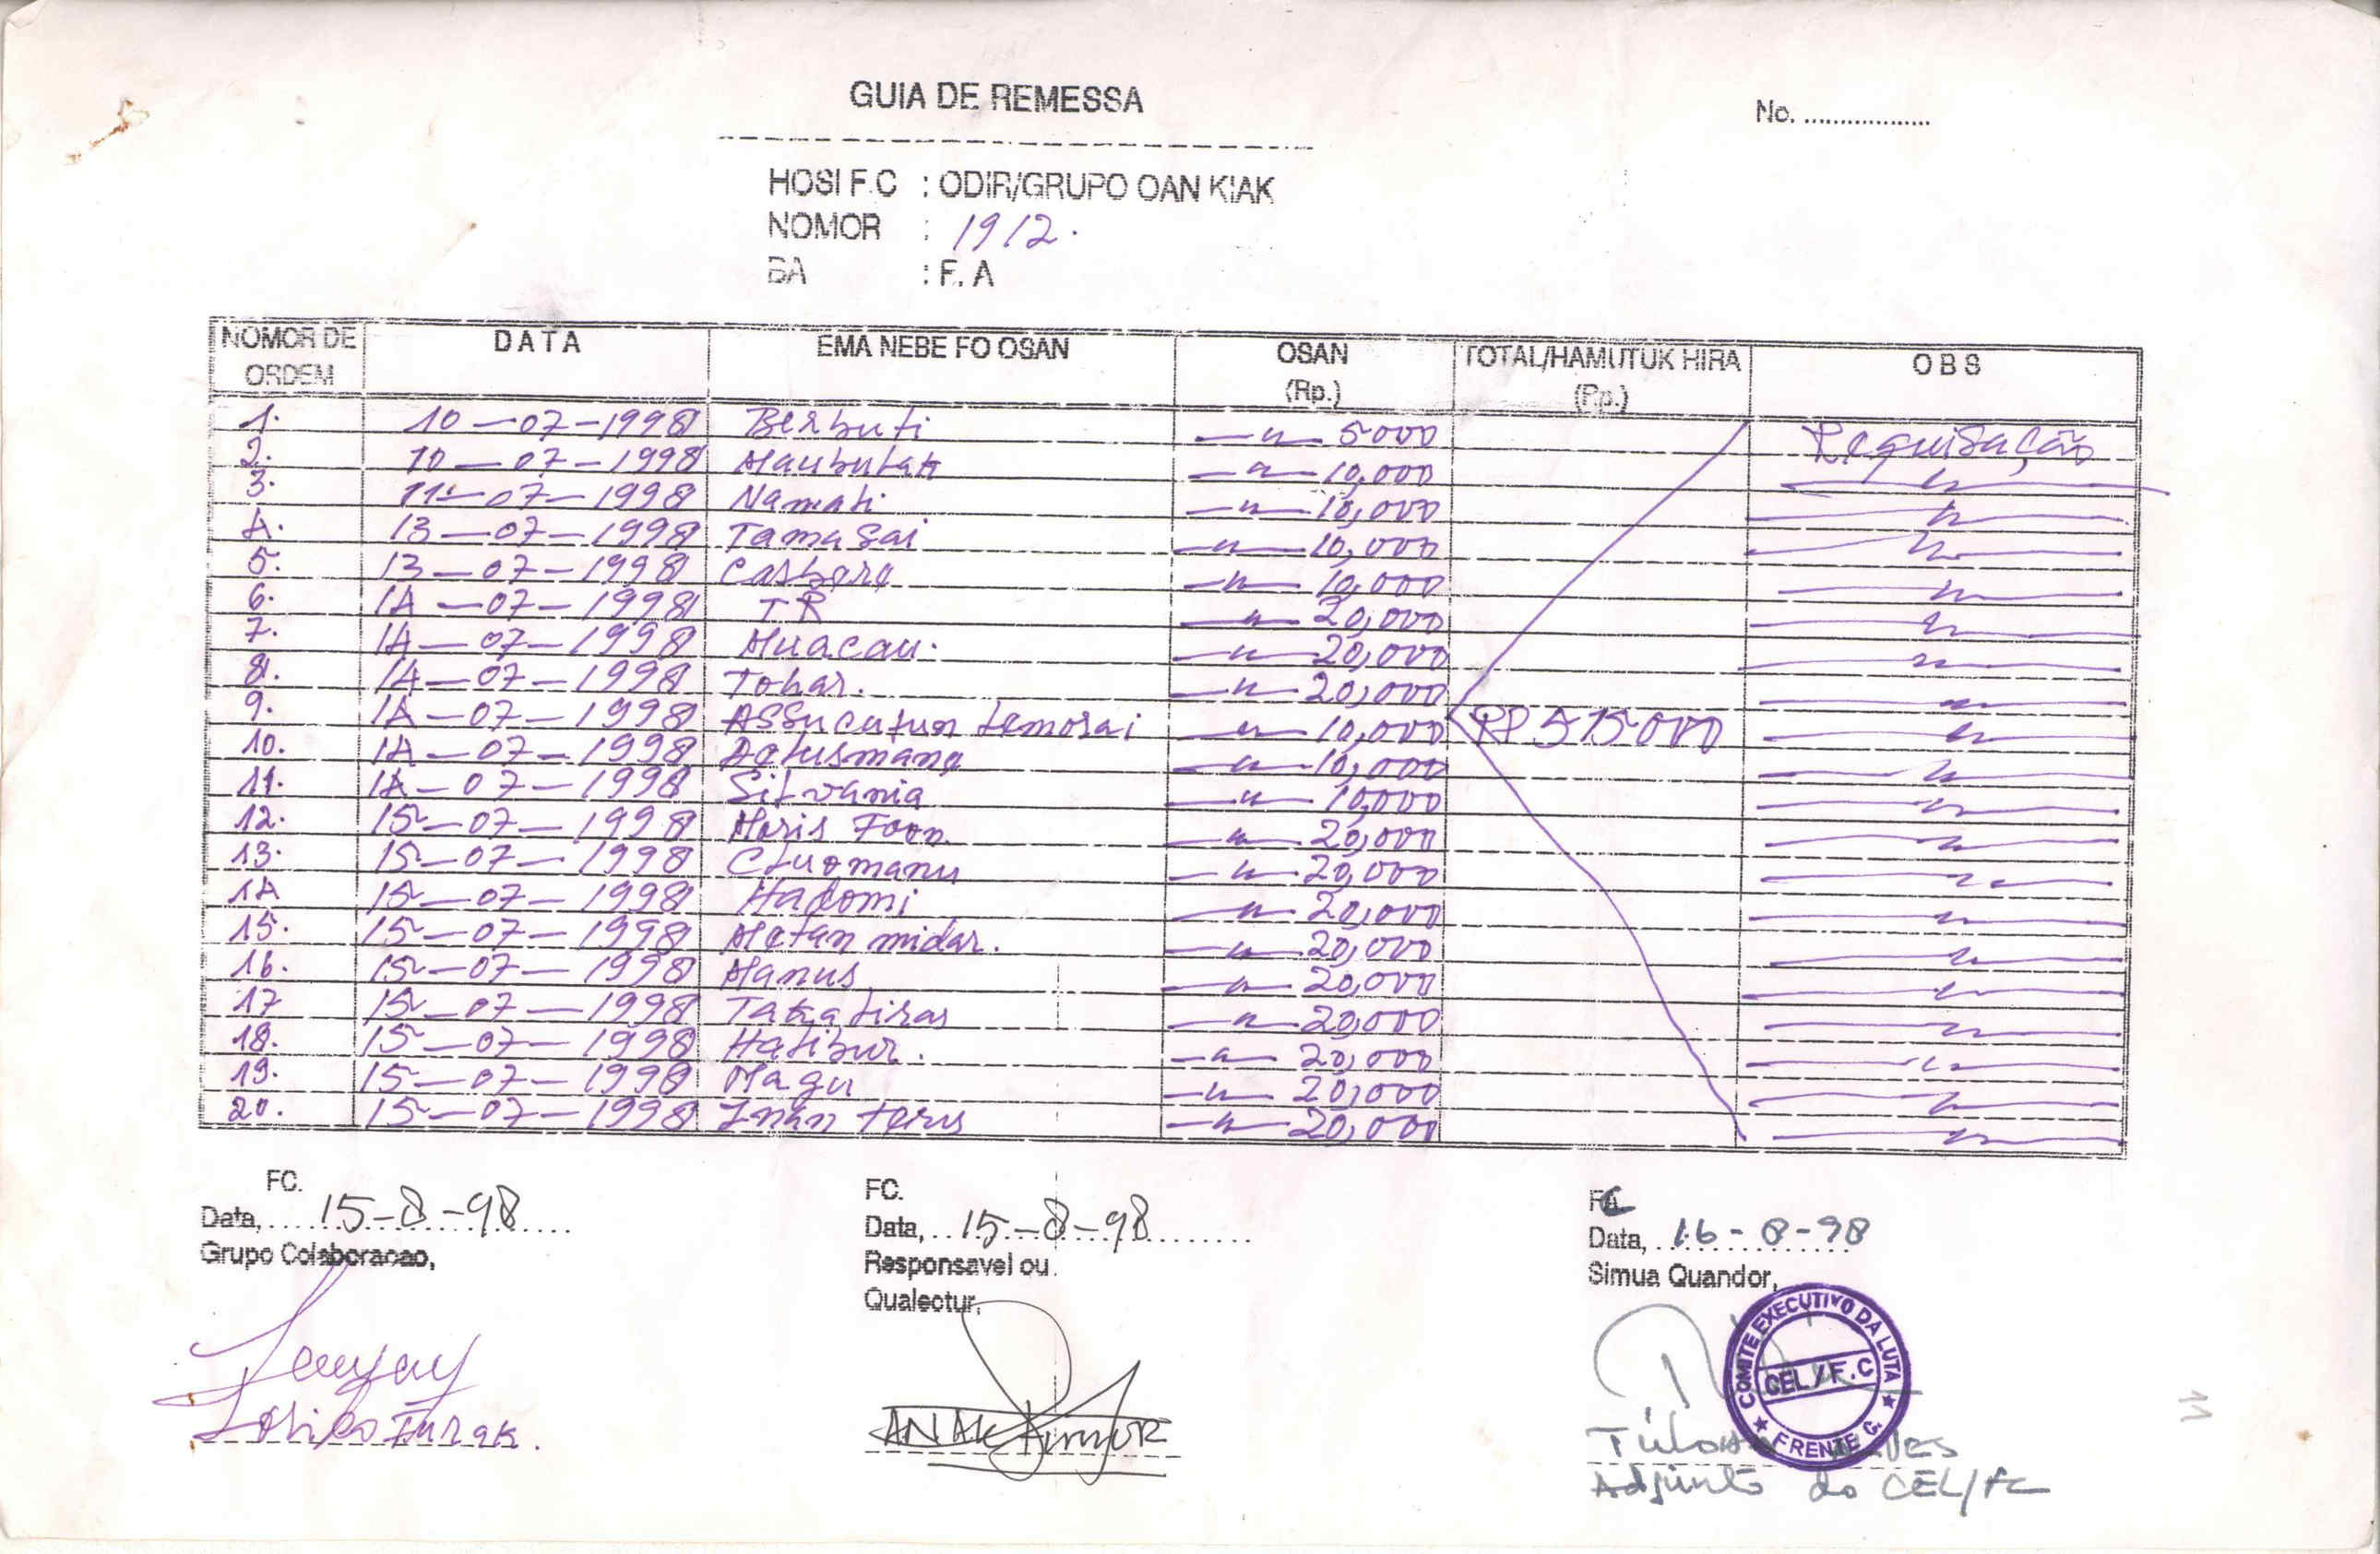 GUIA DE REMESSA
No. ..................
HOSI F.C : ODIR/GRUPO OAN KIAK
NOMOR : 1912.
BA : F. A
NOMOR DE ORDEM DATA EMA NEBE FO OSAN OSAN (Rp.) TOTAL/HAMUTUK HIRA (Rp.) OBS
1. 10-07-1998 Berbuti —"— 5000 Requisação
2. 10-07-1998 Maubulak —"— 10,000 —"—
3. 11-07-1998 Namati —"— 10,000 —"—
4. 13-07-1998 Tamasai —"— 10,000 —"—
5. 13-07-1998 —"— 10,000 —"—
6. 14-07-1998 TR —"— 20,000 —"—
7. 14-07-1998 Huacau. —"— 20,000 —"—
8. 14-07-1998 Tohar. —"— 20,000 —"—
9. 14-07-1998 Assucutun Lemorai —"— 10,000 RP 315000 —"—
10. 14-07-1998 —"— 10,000 —"—
11. 14-07-1998 Silvania —"— 10,000 —"—
12. 15-07-1998 —"— 20,000 —"—
13. 15-07-1998 —"— 20,000 —"—
14 15-07-1998 Hadomi —"— 20,000 —"—
15. 15-07-1998 Metan midar. —"— 20,000 —"—
16. 15-07-1998 Manus —"— 20,000 —"—
17 15-07-1998 —"— 20,000 —"—
18. 15-07-1998 Halibur. —"— 20,000 —"—
19. 15-07-1998 Magu —"— 20,000 —"—
20. 15-07-1998 —"— 20,000 —"—
FC.
Data, 15-8-98
Grupo Colaboracao,
FC.
Data, 15-8-98
Responsavel ou
Qualectur,
ANAK
FC
Data, 16-8-98
Simua Quandor,
COMITE EXECUTIVO DA LUTA
CEL/F.C
FRENTE C.
Adjunto do CEL/FC